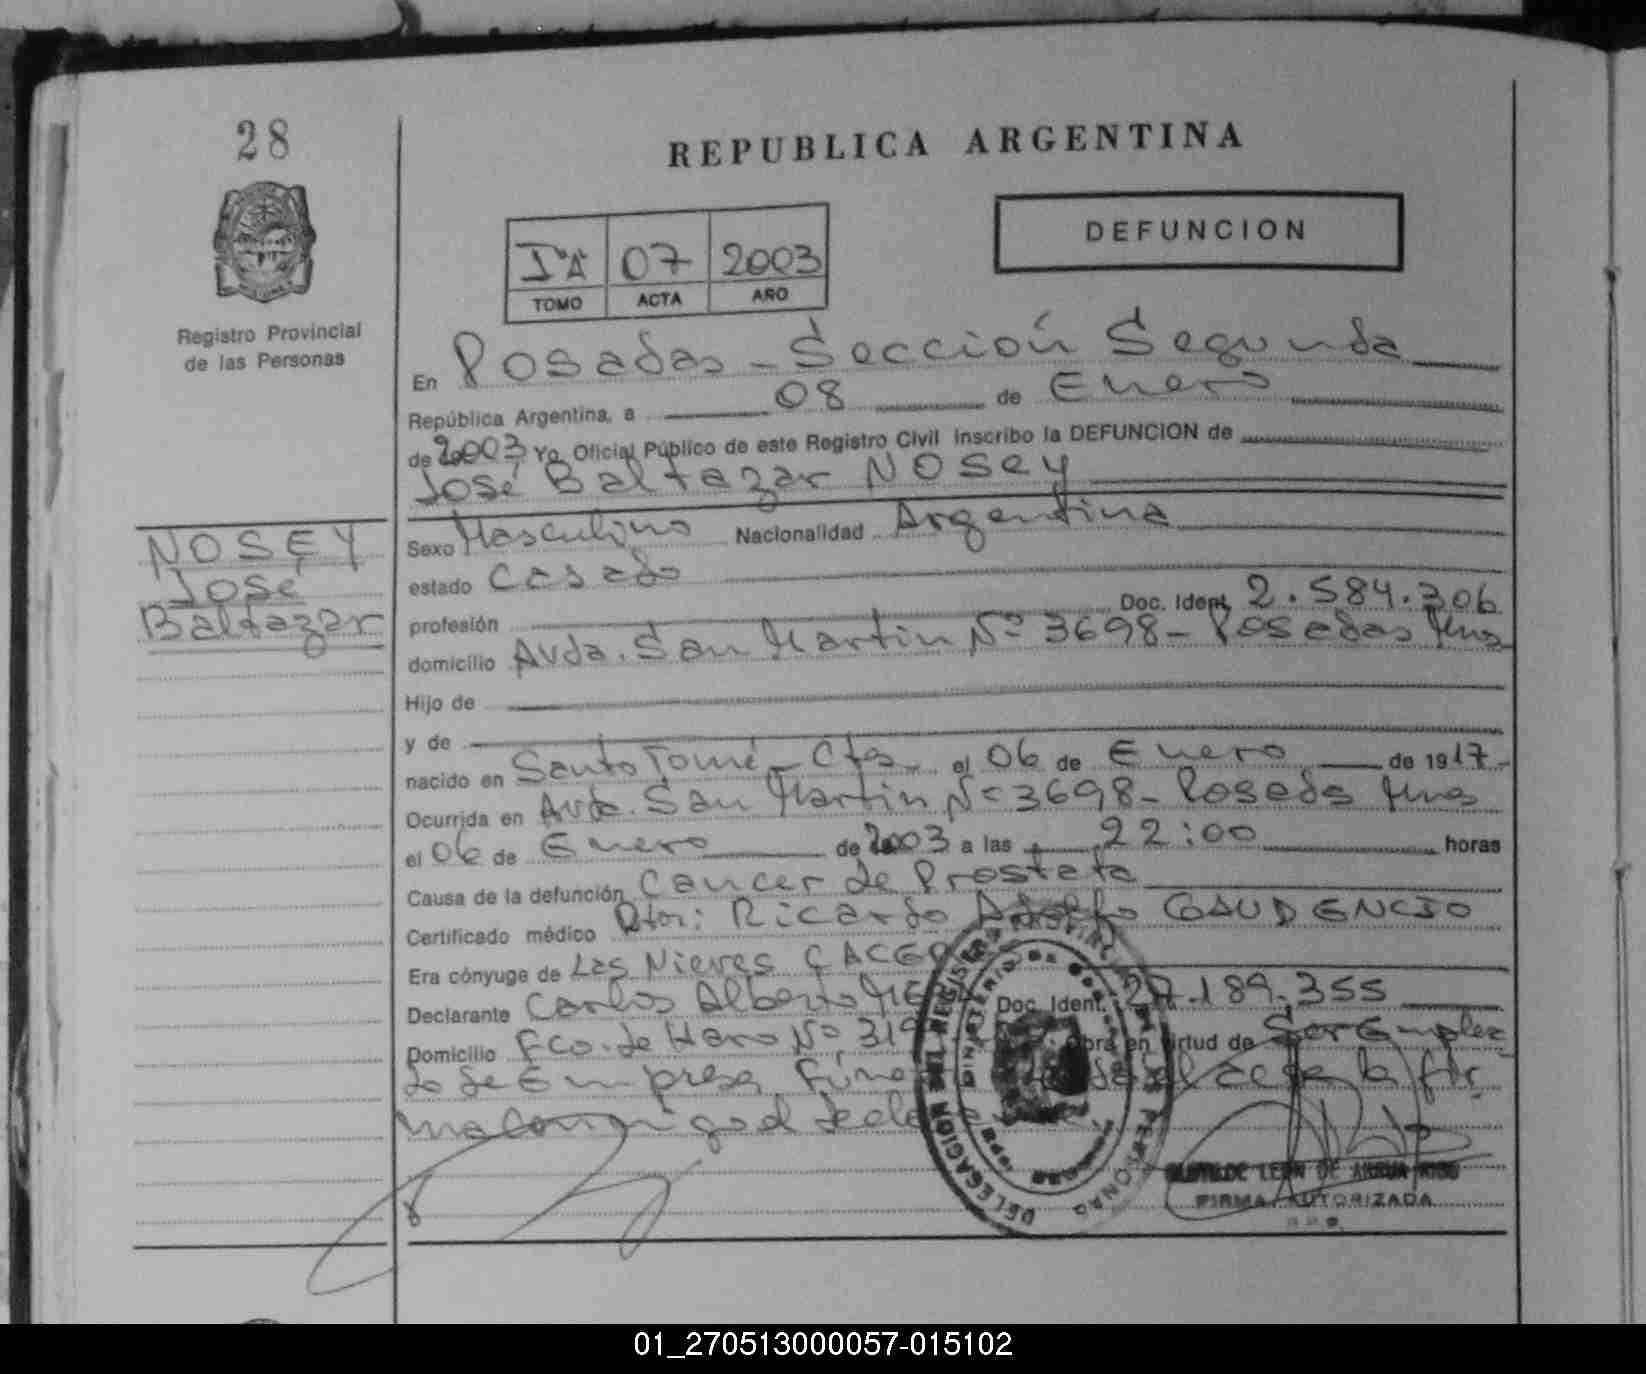 28
REPUBLICA ARGENTINA
DEFUNCION
IºA 07 2003
TOMO ACTA AÑO
Registro Provincial
de las Personas
En Posadas - Sección Segunda
República Argentina, a 08 de Enero
de 2003 Yo, Oficial Público de este Registro Civil inscribo la DEFUNCION de
José Baltazar NOSEY
NOSEY
José
Baltazar
Sexo Masculino Nacionalidad Argentina
estado Casado
profesión Doc. Ident. 2.584.306
domicilio Avda. San Martin Nº 3698 - Posadas Mnes
Hijo de
y de
nacido en Santo Tomé - Ctes el 06 de Enero de 1917
Ocurrida en Avda. San Martin Nº 3698 - Posadas Mnes
el 06 de Enero de 2003 a las 22:00 horas
Causa de la defunción Cancer de Prostata
Certificado médico Dtor: Ricardo Adolfo GAUDENCIO
Era cónyuge de Las Nieves
Declarante Carlos Alberto Doc. Ident. 27.189.355
Domicilio Fco. de Haro Nº Obra en virtud de Ser Emplea
do de Empresa el acta la fir
ma conmigo el
DELEGACION DEL REGISTRO PROVINCIAL DE LAS PERSONAS
MINISTERIO DE GOBIERNO
CLOTILDE LEON DE
FIRMA AUTORIZADA
01_270513000057-015102